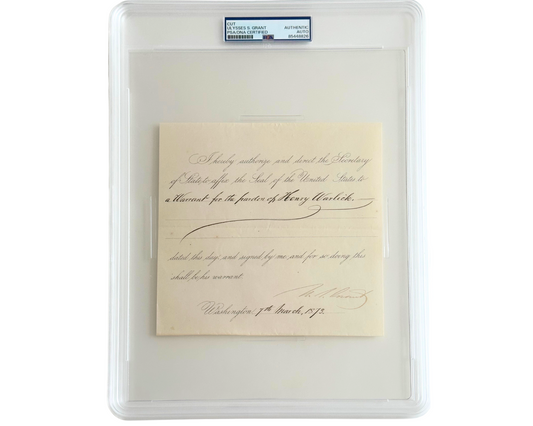 CUT
ULYSSES S. GRANT
PSA/DNA CERTIFIED
AUTHENTIC
AUTO
I hereby authorize and direct the Secretary
of State to affix the Seal of the United States to
a Warrant for the pardon of Henry Warlick,
dated this day, and signed by me, and for so doing this
shall be his warrant.
U. S. Grant
Washington 7th March, 1873